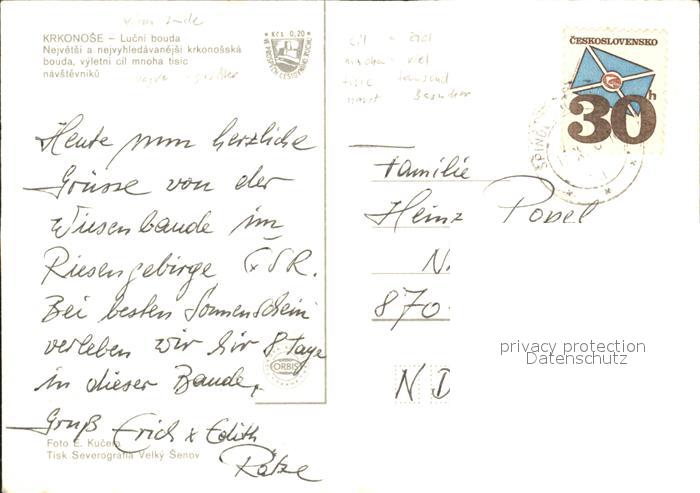 KRKONOŠE – Luční bouda
Největší a nejvyhledávanější krkonošská
bouda, výletní cíl mnoha tisíc
návštěvníků
* Kčs 0,20 *
cíl - Ziel
mnoha - viel
tisíc tausend
návšt Besucher
ČESKOSLOVENSKO
30 h
ŠPINDL
Heute nun herzliche
Grüsse von der
Wiesenbaude im
Riesengebirge ČSR.
Bei besten Sonnenschein
verleben wir hir 8 Tage
in dieser Baude.
Gruß Erich & Edith
Rätze
ORBIS
Foto E. Kučera
Tisk Severografia Velký Šenov
Familie
Heinz Popel
N.
870
N D
privacy protection
Datenschutz